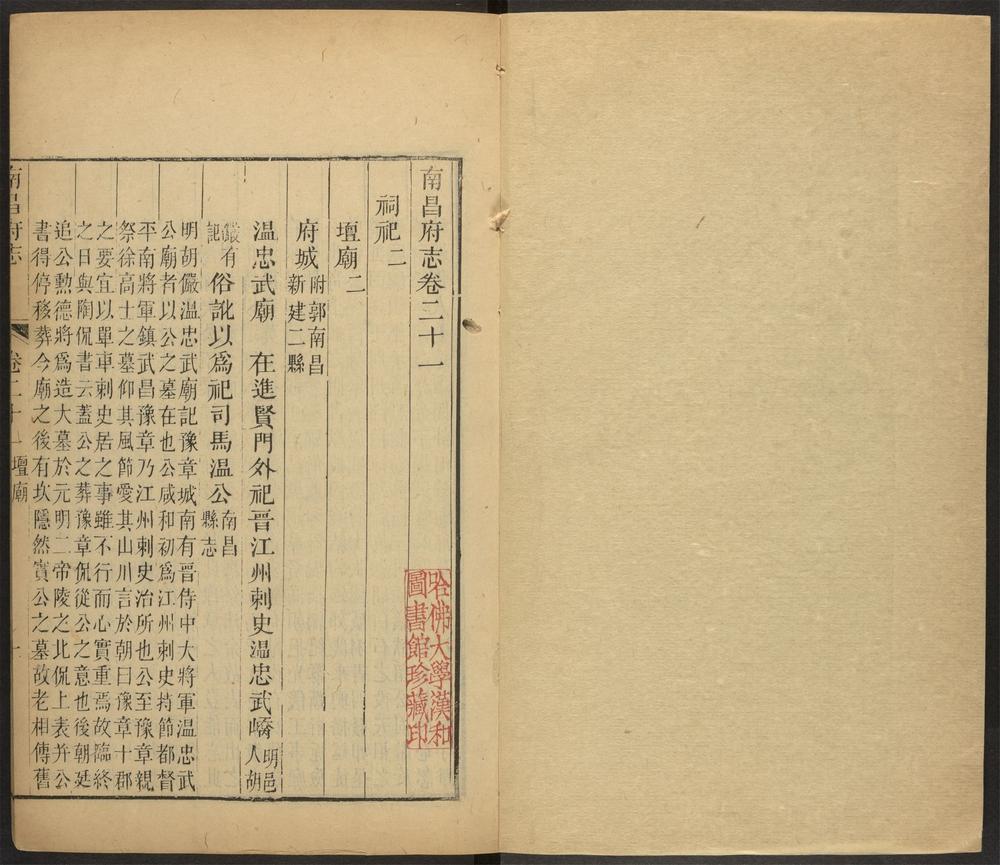 南昌府志卷二十一
祠祀二
壇廟二
府城附郭南昌新建二縣
温忠武廟 在進賢門外祀晉江州刺史温忠武嶠明邑人胡
儼有記俗訛以爲祀司馬温公南昌縣志
明胡儼温忠武廟記豫章城南有晉侍中大將軍温忠武
公廟者以公之墓在也公咸和初爲江州刺史持節都督
平南將軍鎮武昌豫章乃江州刺史治所也公至豫章親
祭徐高士之墓仰其風節愛其山川言於朝曰豫章十郡
之要宜以單車刺史居之事雖不行而心實重焉故臨終
之日與陶侃書云蓋公之葬豫章侃從公之意也後朝廷
追公勲德將爲造大墓於元明二帝陵之北侃上表并公
書得停移葬今廟之後有坎隱然實公之墓故老相傳舊
南昌府志 卷二十一 壇廟 一
哈佛大學漢和
圖書館珍藏印